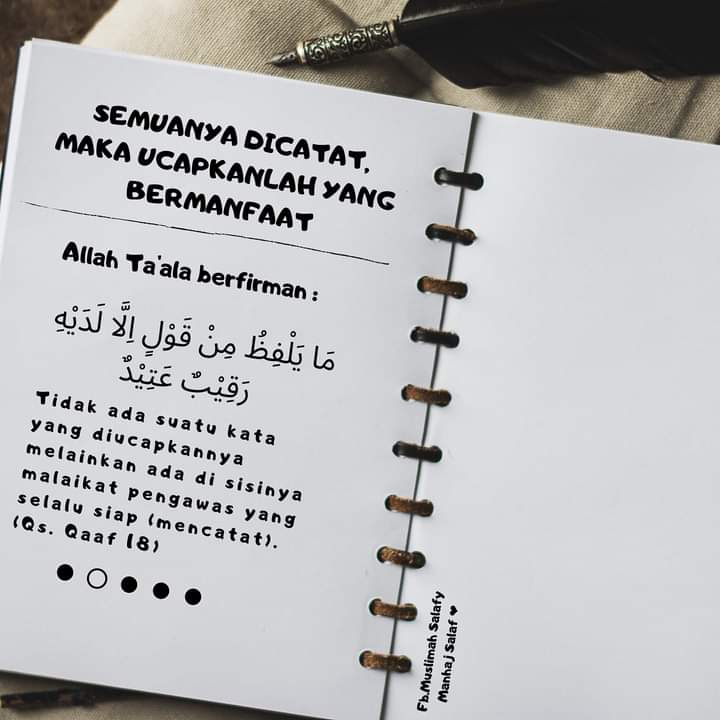 SEMUANYA DICATAT,
MAKA UCAPKANLAH YANG
BERMANFAAT
Allah Ta'ala berfirman :
مَا يَلْفِظُ مِنْ قَوْلٍ اِلَّا لَدَيْهِ
رَقِيْبٌ عَتِيْدٌ
Tidak ada suatu kata
yang diucapkannya
melainkan ada di sisinya
malaikat pengawas yang
selalu siap (mencatat).
(Qs. Qaaf 18)
Fb.Muslimah Salafy
Manhaj Salaf ❤